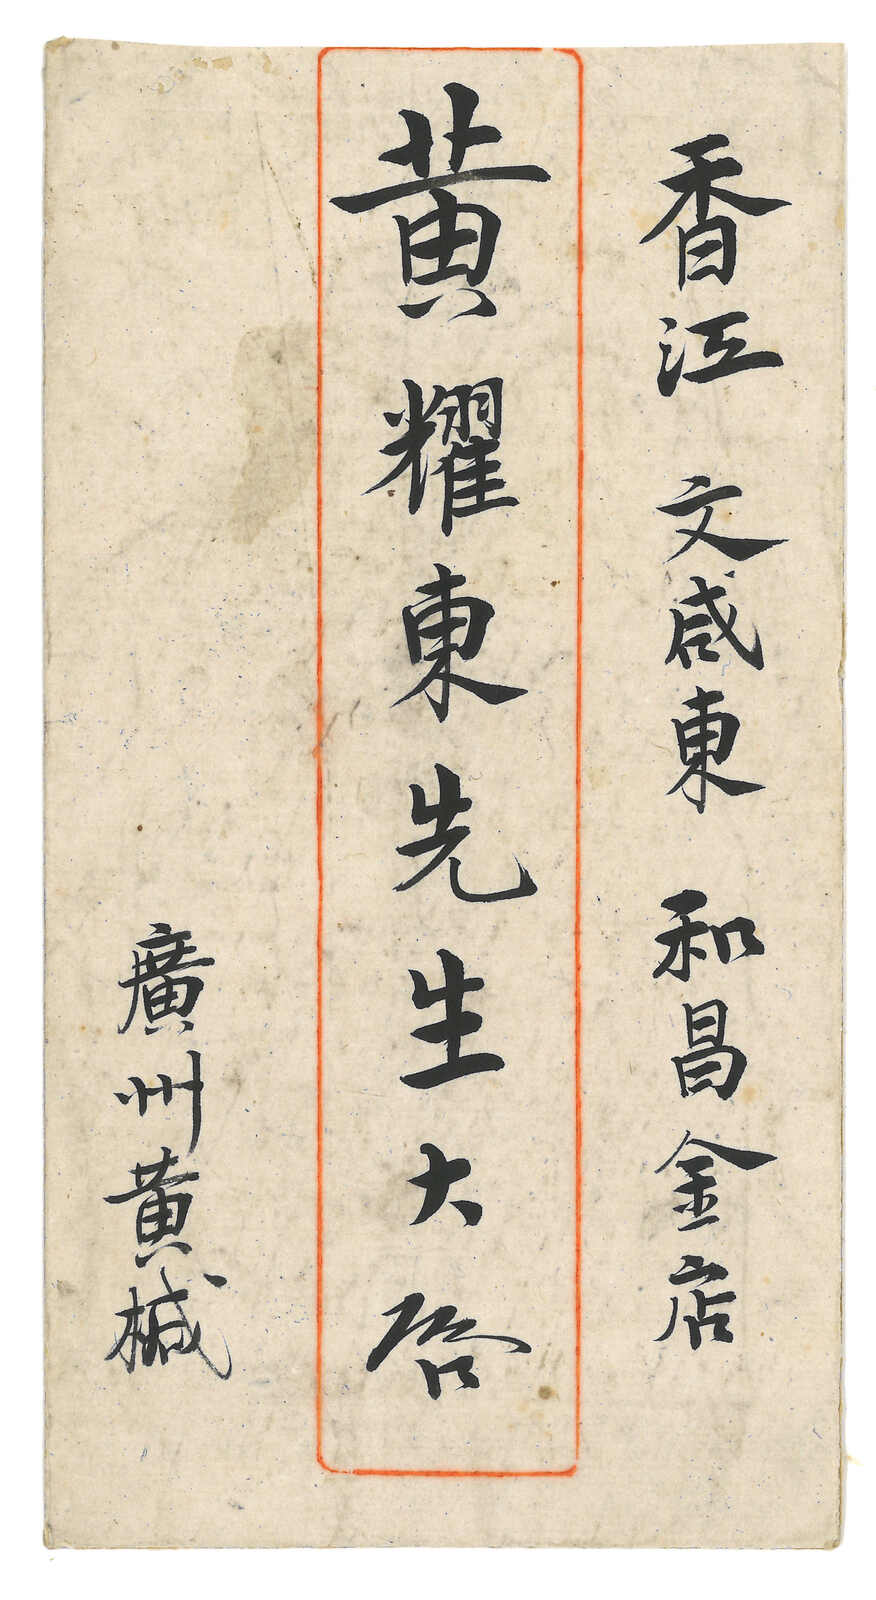 香江 文咸東 和昌金店
黃耀東先生大啓
廣州黃椷